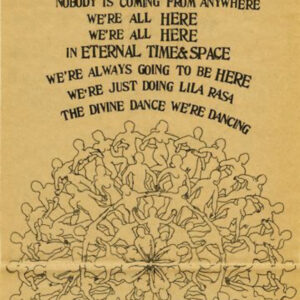 NOBODY IS COMING FROM ANYWHERE
WE'RE ALL HERE
WE'RE ALL HERE
IN ETERNAL TIME&SPACE
WE'RE ALWAYS GOING TO BE HERE
WE'RE JUST DOING LILA RASA
THE DIVINE DANCE WE'RE DANCING